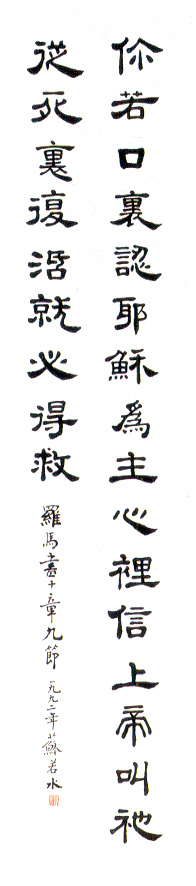 你若口裏認耶穌為主心裡信上帝叫祂
從死裏復活就必得救
羅馬書十章九節 一九九二年 蘇若水